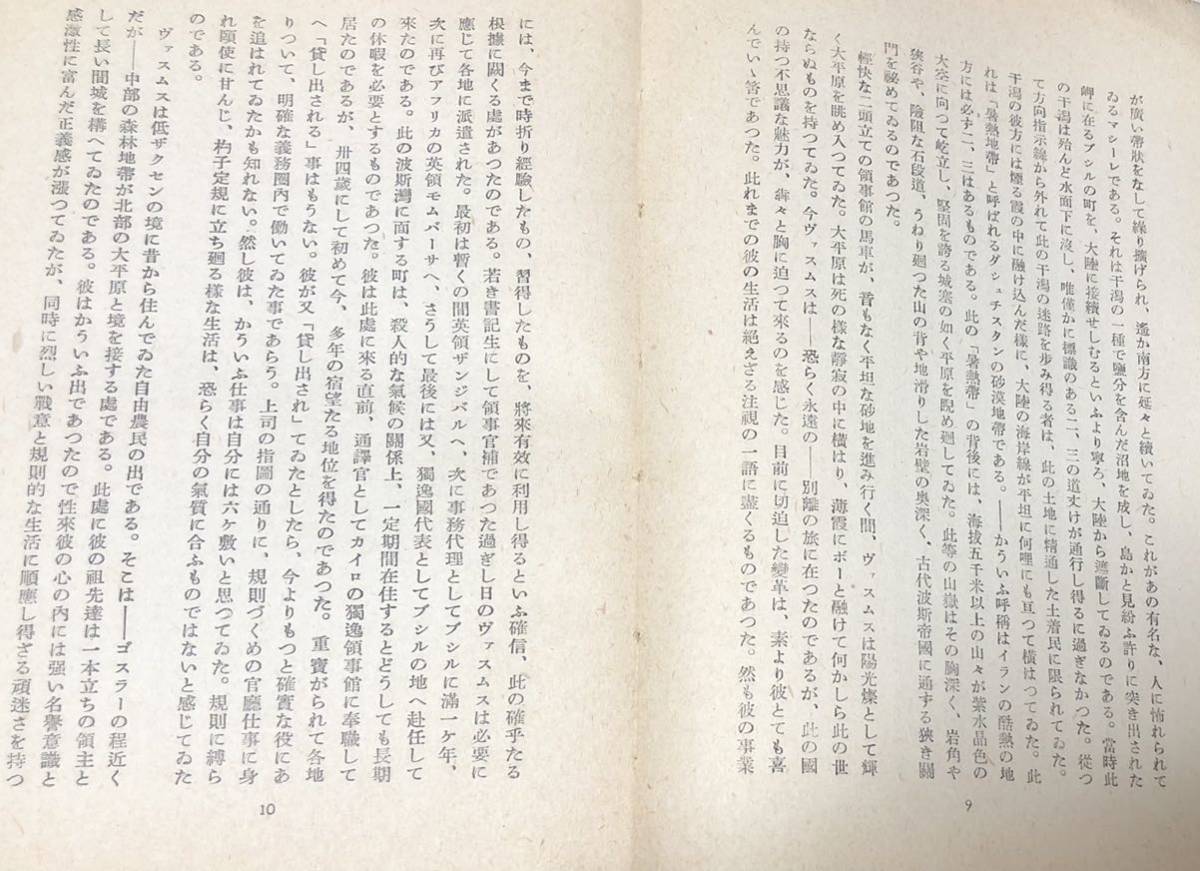 が廣い帶狀をなして繰り擴げられ、遙か南方に延々と續いてゐた。これがあの有名な、人に怖れられて
ゐるマシーレである。それは干潟の一種で鹽分を含んだ沼地を成し、島かと見紛ふ許りに突き出された
岬に在るブシルの町を、大陸に接續せしむるといふより寧ろ、大陸から遮斷してゐるのである。當時此
の干潟は殆んど水面下に沒し、唯僅かに標識のある二、三の道丈けが通行し得るに過ぎなかつた。從つ
て方向指示線から外れて此の干潟の迷路を步み得る者は、此の土地に精通した土着民に限られてゐた。
干潟の彼方には煙る霞の中に融け込んだ樣に、大陸の海岸線が平坦に何哩にも亙つて橫はつてゐた。此
れは「暑熱地帶」と呼ばれるダシュチスタンの砂漠地帶である。――かういふ呼稱はイランの酷熱の地
方には必ず二、三はあるものである。此の「暑熱帶」の背後には、海拔五千米以上の山々が紫水晶色の
大空に向つて屹立し、堅固を誇る城塞の如く平原を睨め廻してゐた。此等の山嶽はその胸深く、岩角や
狹谷や、險阻な石段道、うねり廻つた山の背や地滑りした岩壁の奧深く、古代波斯帝國に通ずる狹き關
門を祕めてゐるのであつた。
輕快な二頭立ての領事館の馬車が、音もなく平坦な砂地を進み行く間、ヴァスムスは陽光燦として輝
く大平原を眺め入つてゐた。大平原は死の樣な靜寂の中に橫はり、薄霞にボーと融けて何かしら此の世
ならぬものを持つてゐた。今ヴァスムスは――恐らく永遠の――別離の旅に在つたのであるが、此の國
の持つ不思議な魅力が、犇々と胸に迫つて來るのを感じた。目前に切迫した變革は、素より彼とても喜
んでいゝ答であつた。此れまでの彼の生活は絕えざる注視の一語に盡くるものであつた。然も彼の事業
9
には、今まで時折り經驗したもの、習得したものを、將來有效に利用し得るといふ確信、此の確乎たる
根據に闕くる處があつたのである。若き書記生にして領事官補であつた過ぎし日のヴァスムスは必要に
應じて各地に派遣された。最初は暫くの間英領ザンジバルへ、次に事務代理としてブシルに滿一ケ年、
次に再びアフリカの英領モムバーサへ、さうして最後には又、獨逸國代表としてブシルの地へ赴任して
來たのである。此の波斯灣に面する町は、殺人的な氣候の關係上、一定期間在住するとどうしても長期
の休暇を必要とするものであつた。彼は此處に來る直前、通譯官としてカイロの獨逸領事館に奉職して
居たのであるが、卅四歲にして初めて今、多年の宿望たる地位を得たのであつた。重寶がられて各地
へ「貸し出される」事はもうない。彼が又「貸し出され」てゐたとしたら、今よりもつと確實な役にあ
りついて、明確な義務圈內で働いてゐた事であらう。上司の指圖の通りに、規則づくめの官廳仕事に身
を追はれてゐたかも知れない。然し彼は、かういふ仕事は自分には六ケ敷いと思つてゐた。規則に縛ら
れ頤使に甘んじ、杓子定規に立ち廻る樣な生活は、恐らく自分の氣質に合ふものではないと感じてゐた
のである。
ヴァスムスは低ザクセンの境に昔から住んでゐた自由農民の出である。そこは――ゴスラーの程近く
だが――中部の森林地帶が北部の大平原と境を接する處である。此處に彼の祖先達は一本立ちの領主と
して長い間城を構へてゐたのである。彼はかういふ出であつたので性來彼の心の內には强い名譽意識と
感激性に富んだ正義感が漲つてゐたが、同時に烈しい戰意と規則的な生活に順應し得ざる頑迷さを持つ
10